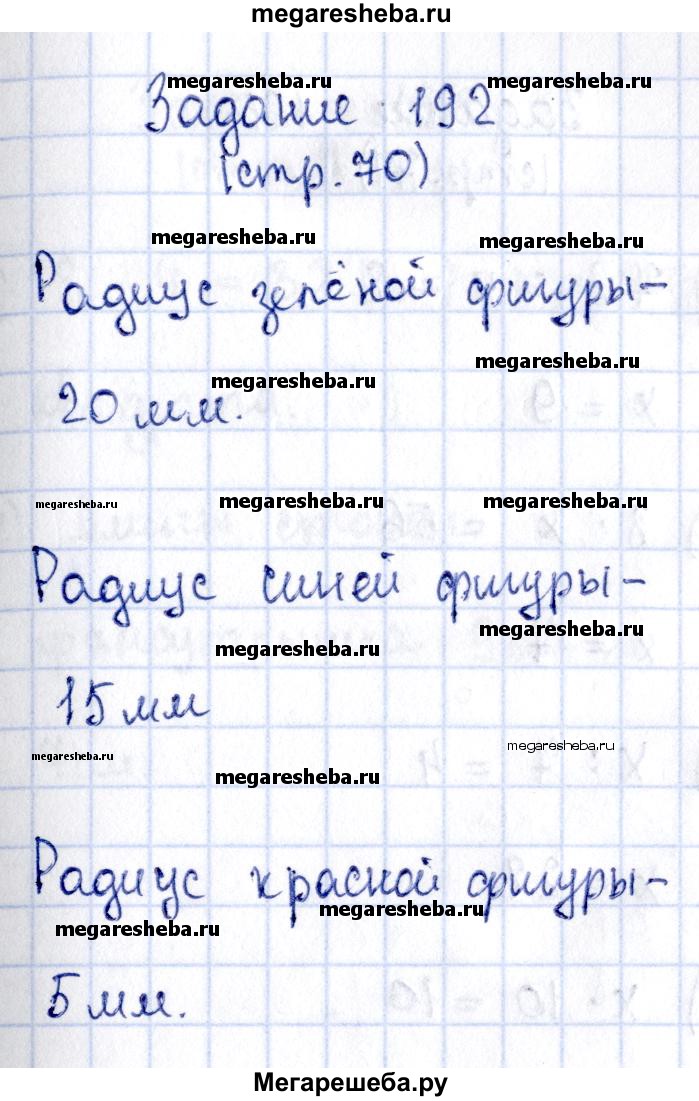 megaresheba.ru
megaresheba.ru megaresheba.ru
Задание 192
(стр. 70)
megaresheba.ru megaresheba.ru
Радиус зелёной фигуры-
megaresheba.ru megaresheba.ru
20 мм.
megaresheba.ru megaresheba.ru megaresheba.ru
Радиус синей фигуры-
megaresheba.ru megaresheba.ru
15 мм
megaresheba.ru megaresheba.ru megaresheba.ru
Радиус красной фигуры-
megaresheba.ru megaresheba.ru
5 мм.
Мегарешеба.ру